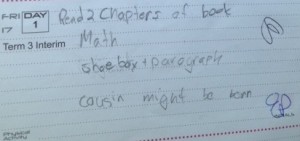 FRI DAY Read 2 Chapters of book
17 1 Math
Term 3 Interim
shoebox + paragraph
cousin might be born
Physical
Activity